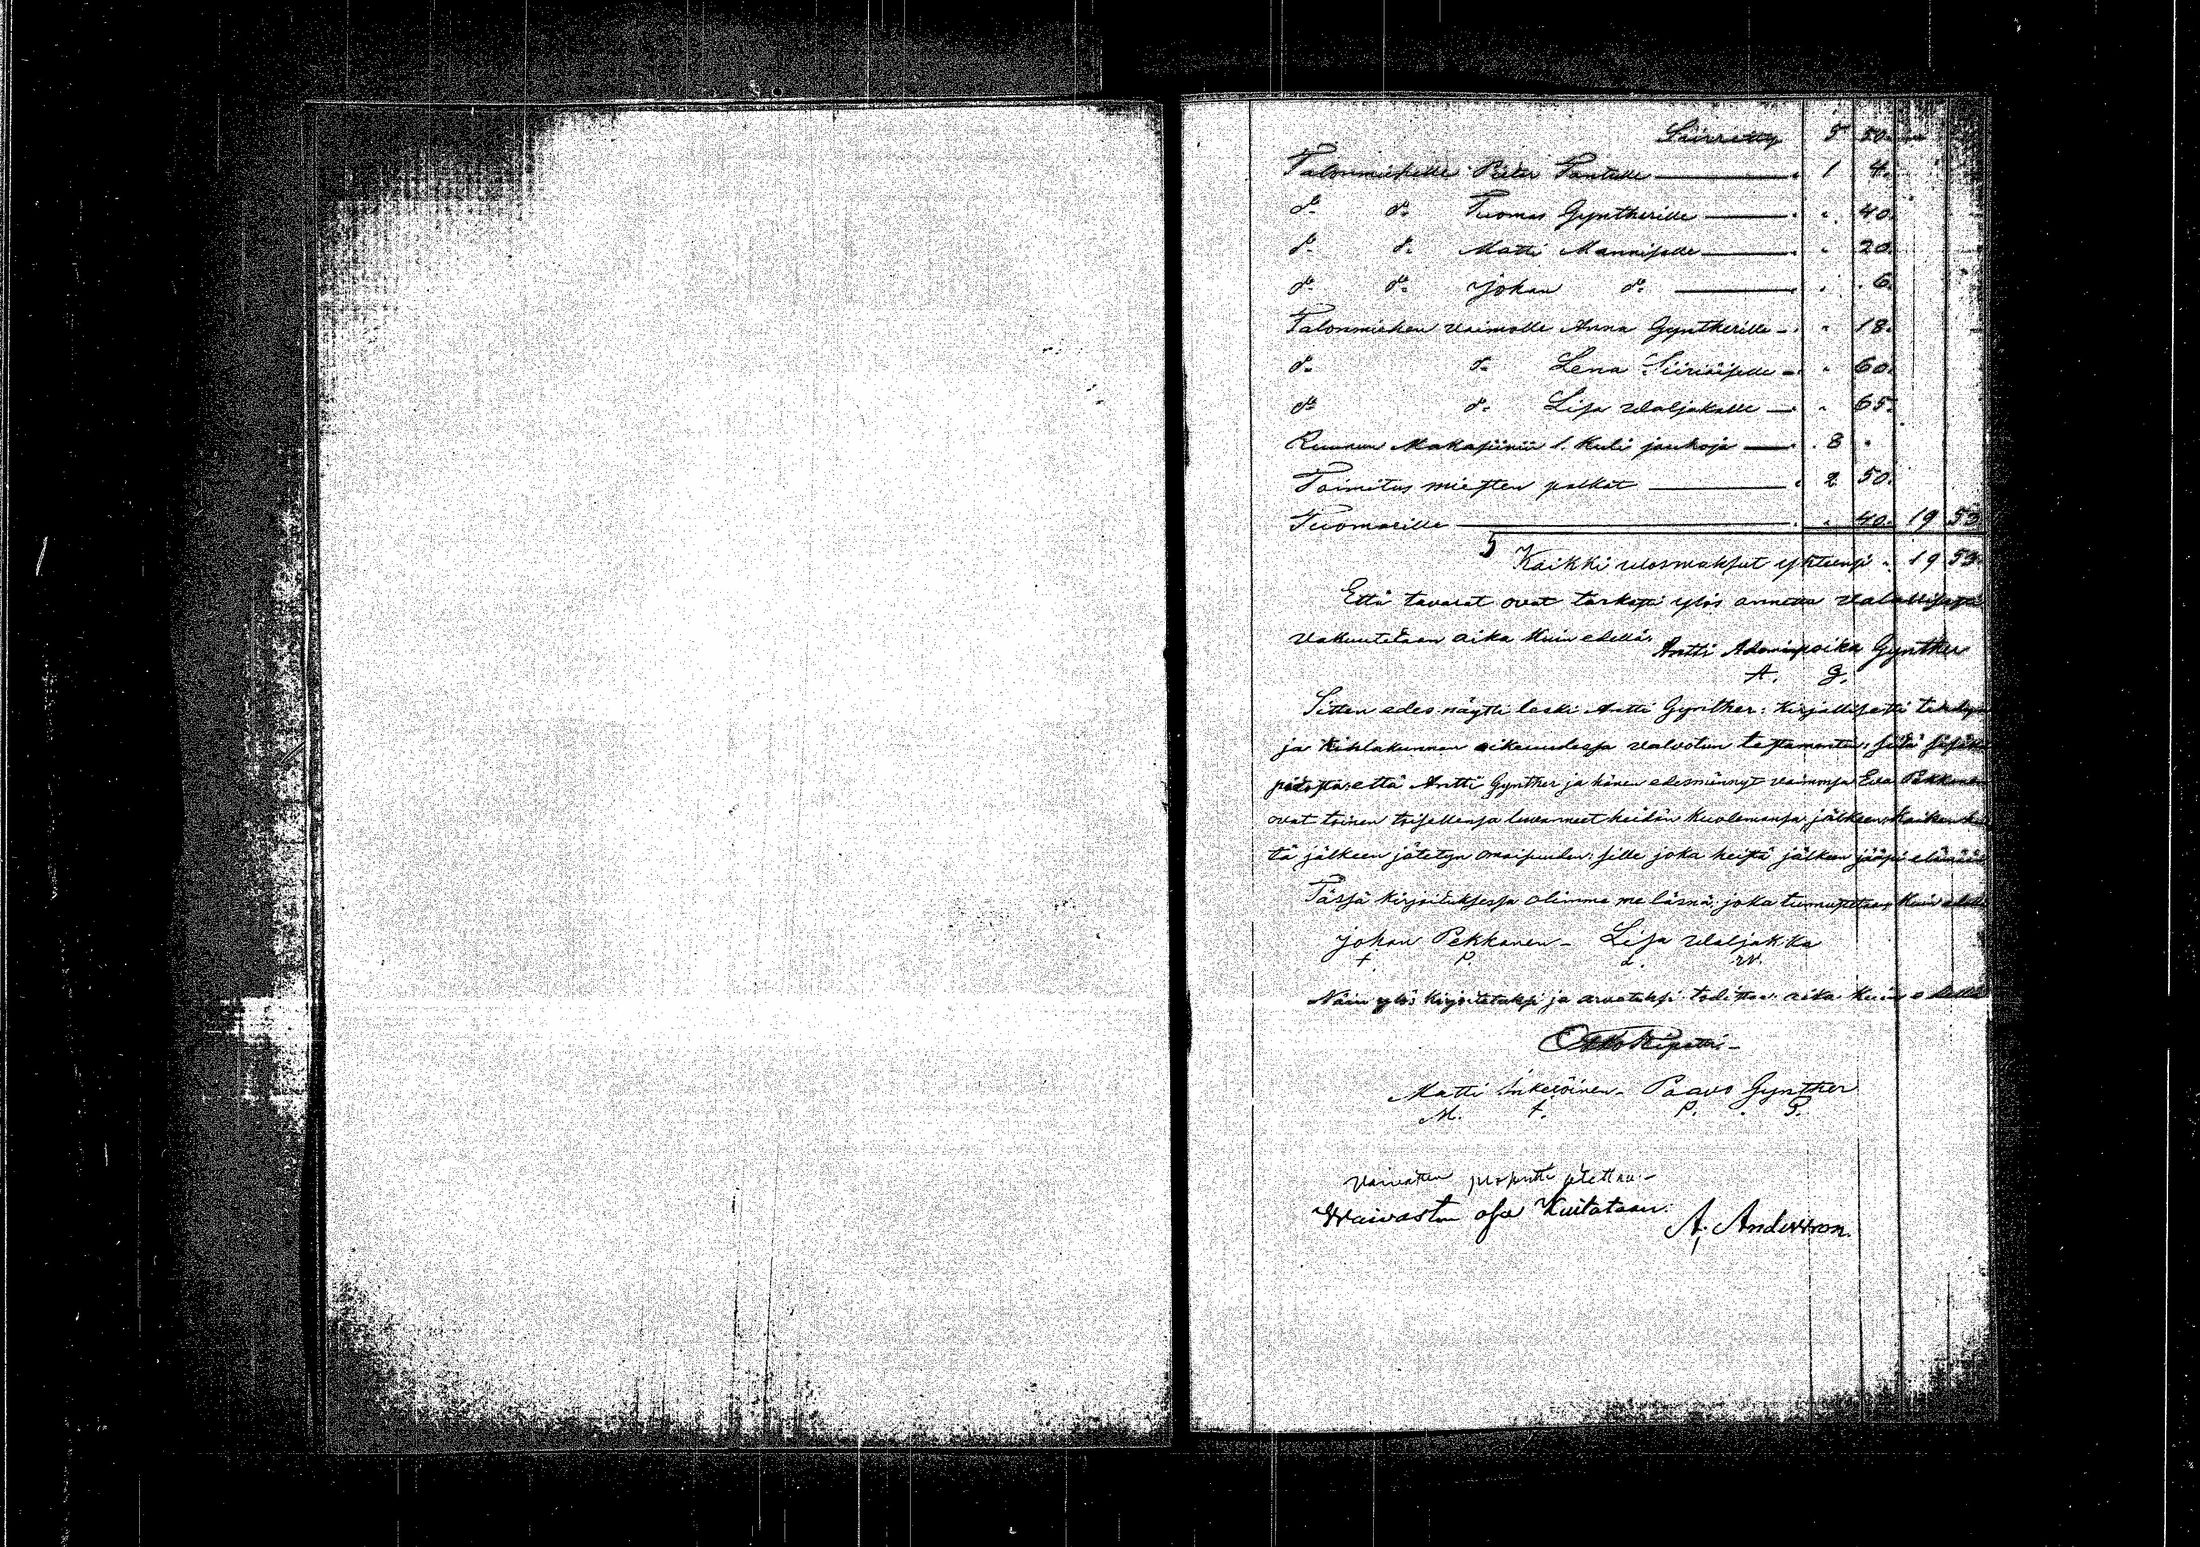 Siirretty 5 50
Talonmiehelle Pieter Pantille 1 4.
d:o d:o Tuomas Gyntherille " 40.
d:o d:o Matti Manniselle " 20.
d:o d:o Johan d:o " 6.
Talonmiehen vaimolle Anna Gyntherille " 18.
d:o d:o Lena " 60.
d:o d:o Lisa Waljakalle " 65.
Ruunun Makasiiniin 1. Kuli jauhoja 8 "
Toimitus miesten palkat 2 50.
Tuomarille " 40. 19 53
5
Kaikki ulosmaksut yhteensi " 19 53.
Että tavarat ovat tarkasti ylös annettu valallisesti
vakuutetaan aika kuin edellä.
Antti Adaminpoika Gynther
A. G.
Sitten edes näytti leski Antti Gynther: kirjallisesti tehdyn
ja Kihlakunnan oikeudessa valvotun testamentin:
että Antti Gynther ja hänen edesmännyt vaimonsa Eva Pekkanen
ovat toinen toisellensa luvanneet heidän kuolemansa jälkeen
tä jälkeen jätetyn omaisuuden: sille joka heistä jälkeen jääpi elämään
Tässä kirjoituksessa olimma me läsnä, joka tunnustetaan kuin edellä
Johan Pekkanen - Lisa Waljakka
P. L. W.
Näin ylös kirjoitetuksi ja arvatuksi todistaa: aika kuin edellä
Matti Inkeröinen - Paavo Gynther
M. I. P. G.
Vaivasten prosentti
Waivasten osa Kuitataan:
A. Andersson.